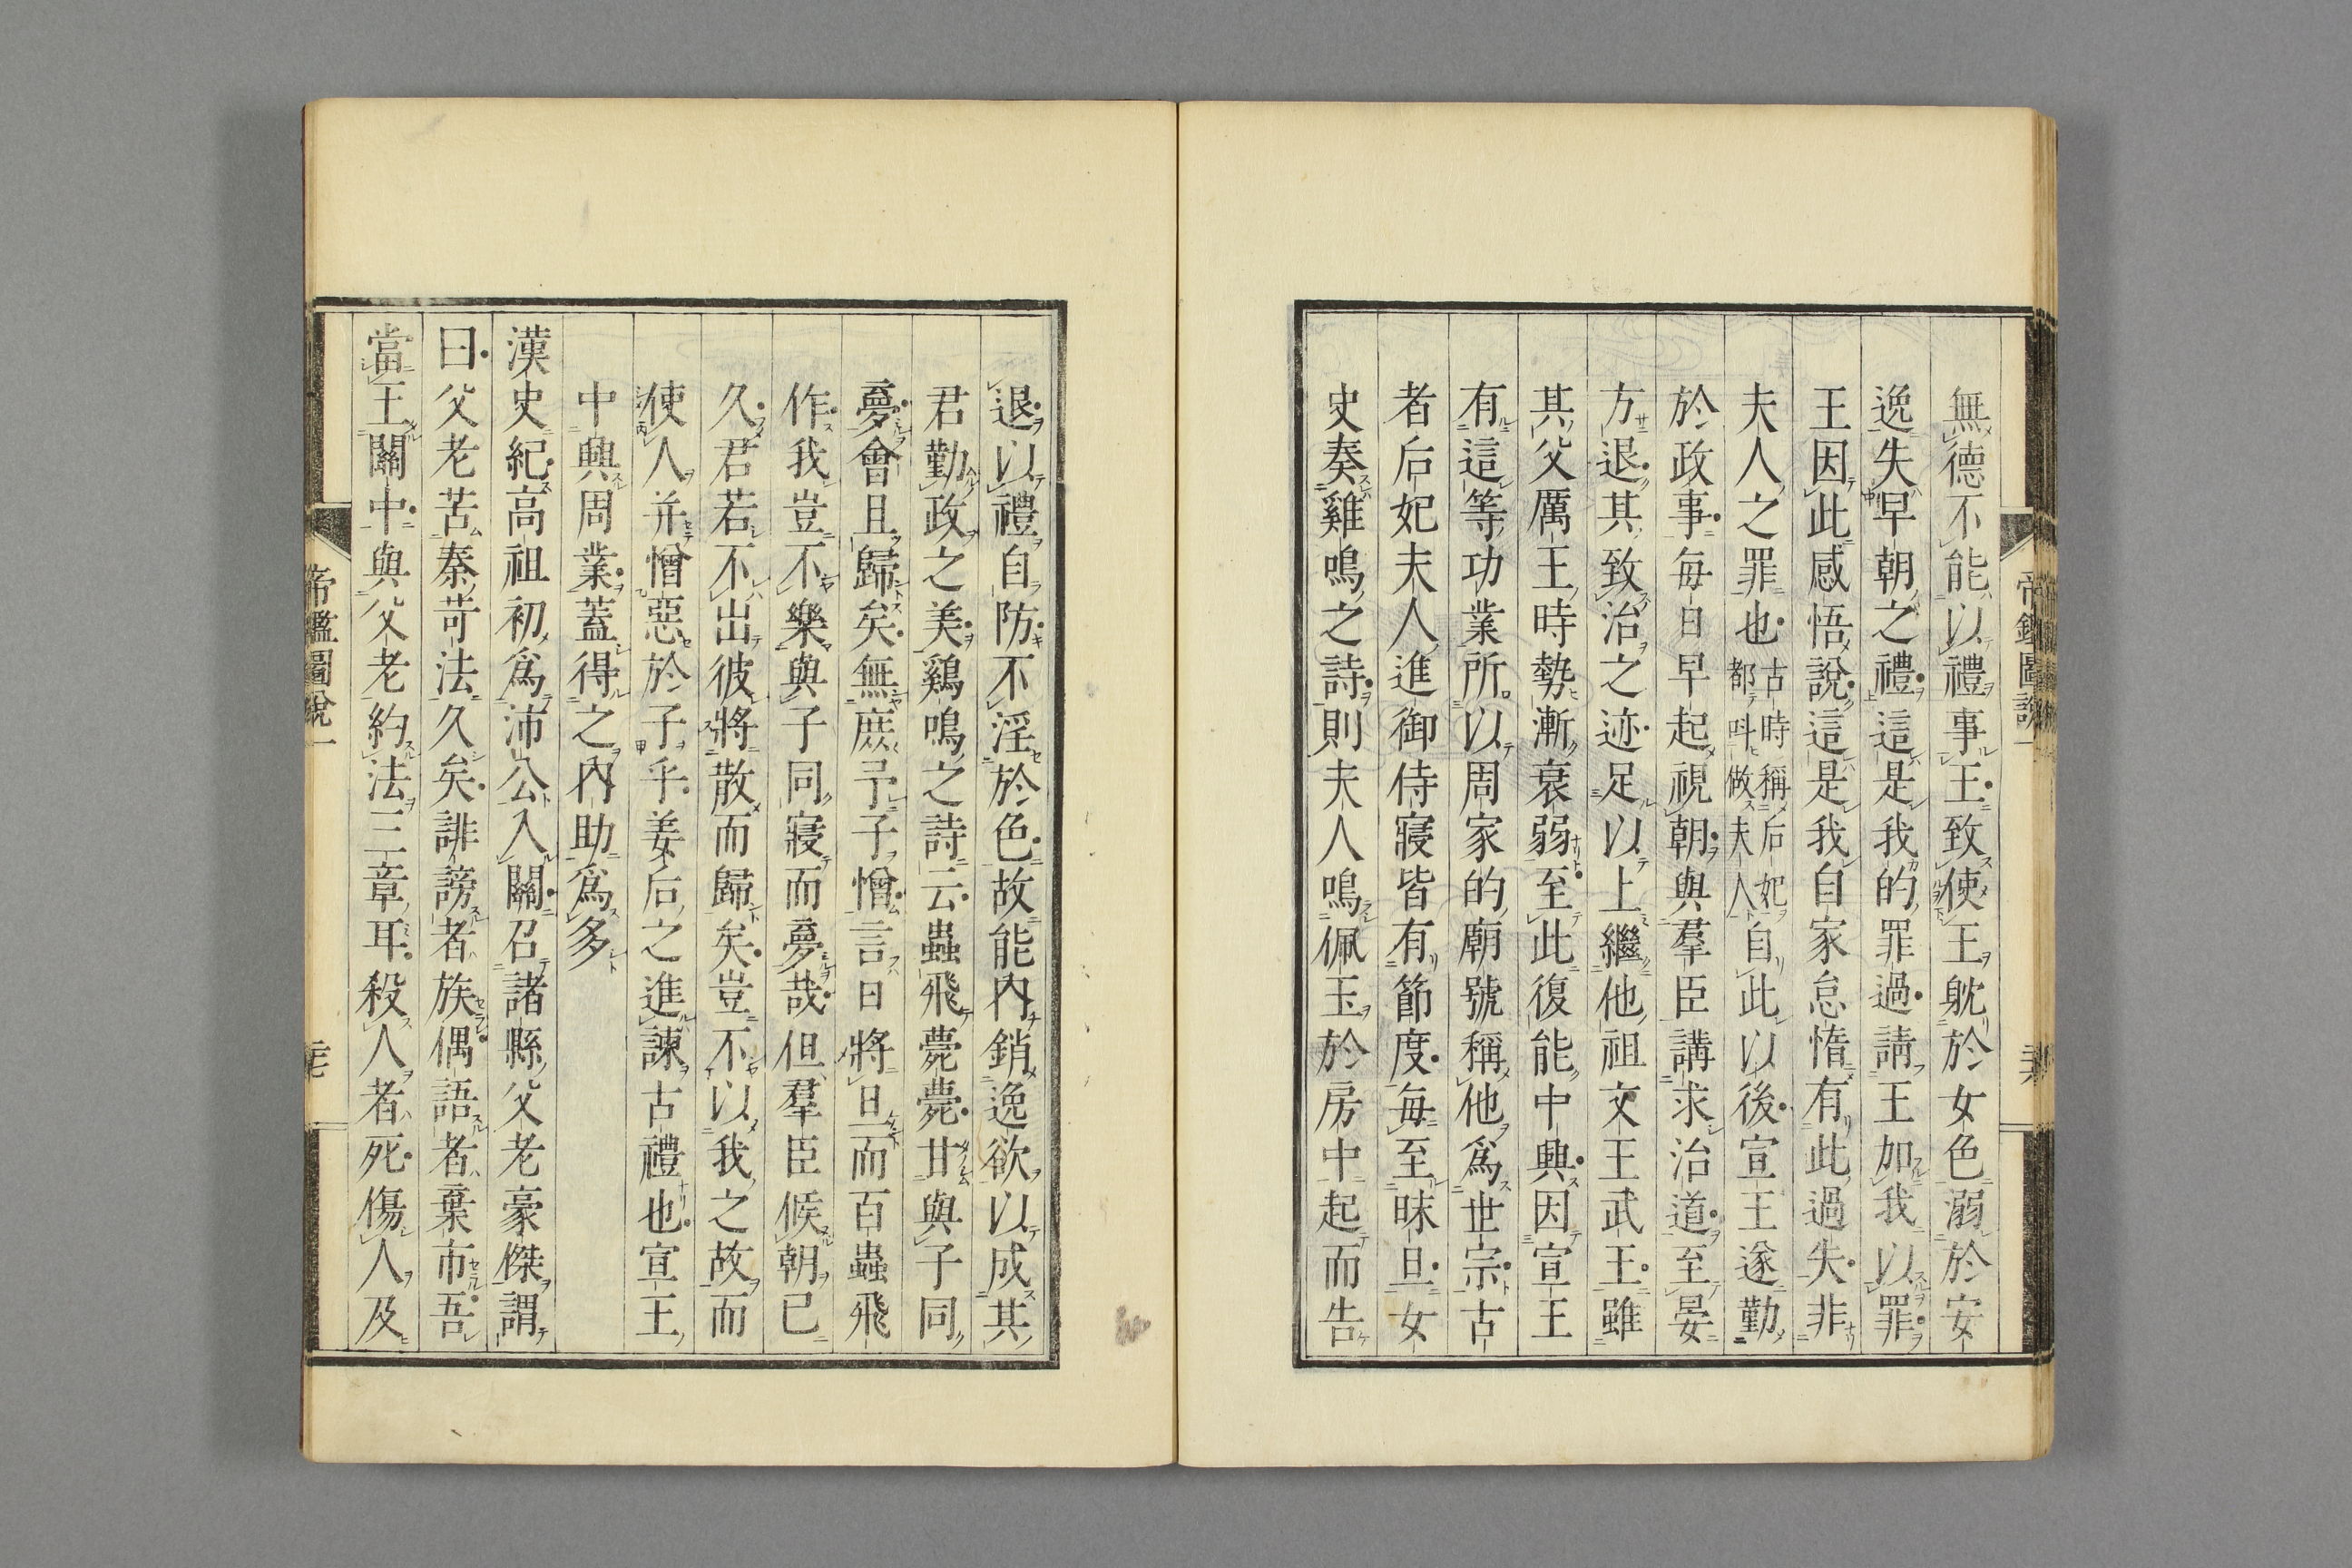 帝鑑圖說一
無德不能以禮事王致使王躭於女色溺於安
逸失早朝之禮這是我的罪過請王加我以罪
王因此感悟說這是我自家怠惰有此過失非
夫人之罪也古時稱后妃都呌做夫人自此以後宣王遂勤
於政事每日早起視朝與羣臣講求治道至晏
方退其致治之迹足以上繼他祖文王武王雖
其父厲王時勢漸衰弱至此復能中興因宣王
有這等功業所以周家的廟號稱他爲世宗古
者后妃夫人進御侍寢皆有節度每至昧旦女
史奏雞鳴之詩則夫人鳴佩玉於房中起而告
退以禮自防不淫於色故能內銷逸欲以成其
君勤政之美鷄鳴之詩云蟲飛薨薨甘與子同
夢會且歸矣無庶予子憎言日將旦而百蟲飛
作我豈不樂與子同寢而夢哉但羣臣候朝已
久君若不出彼將散而歸矣豈不以我之故而
使人并憎惡於子乎姜后之進諫古禮也宣王
中興周業蓋得之內助爲多
漢史紀高祖初爲沛公入關召諸縣父老豪傑謂
曰父老苦秦苛法久矣誹謗者族偶語者棄市吾
當王關中與父老約法三章耳殺人者死傷人及
帝鑑圖說一